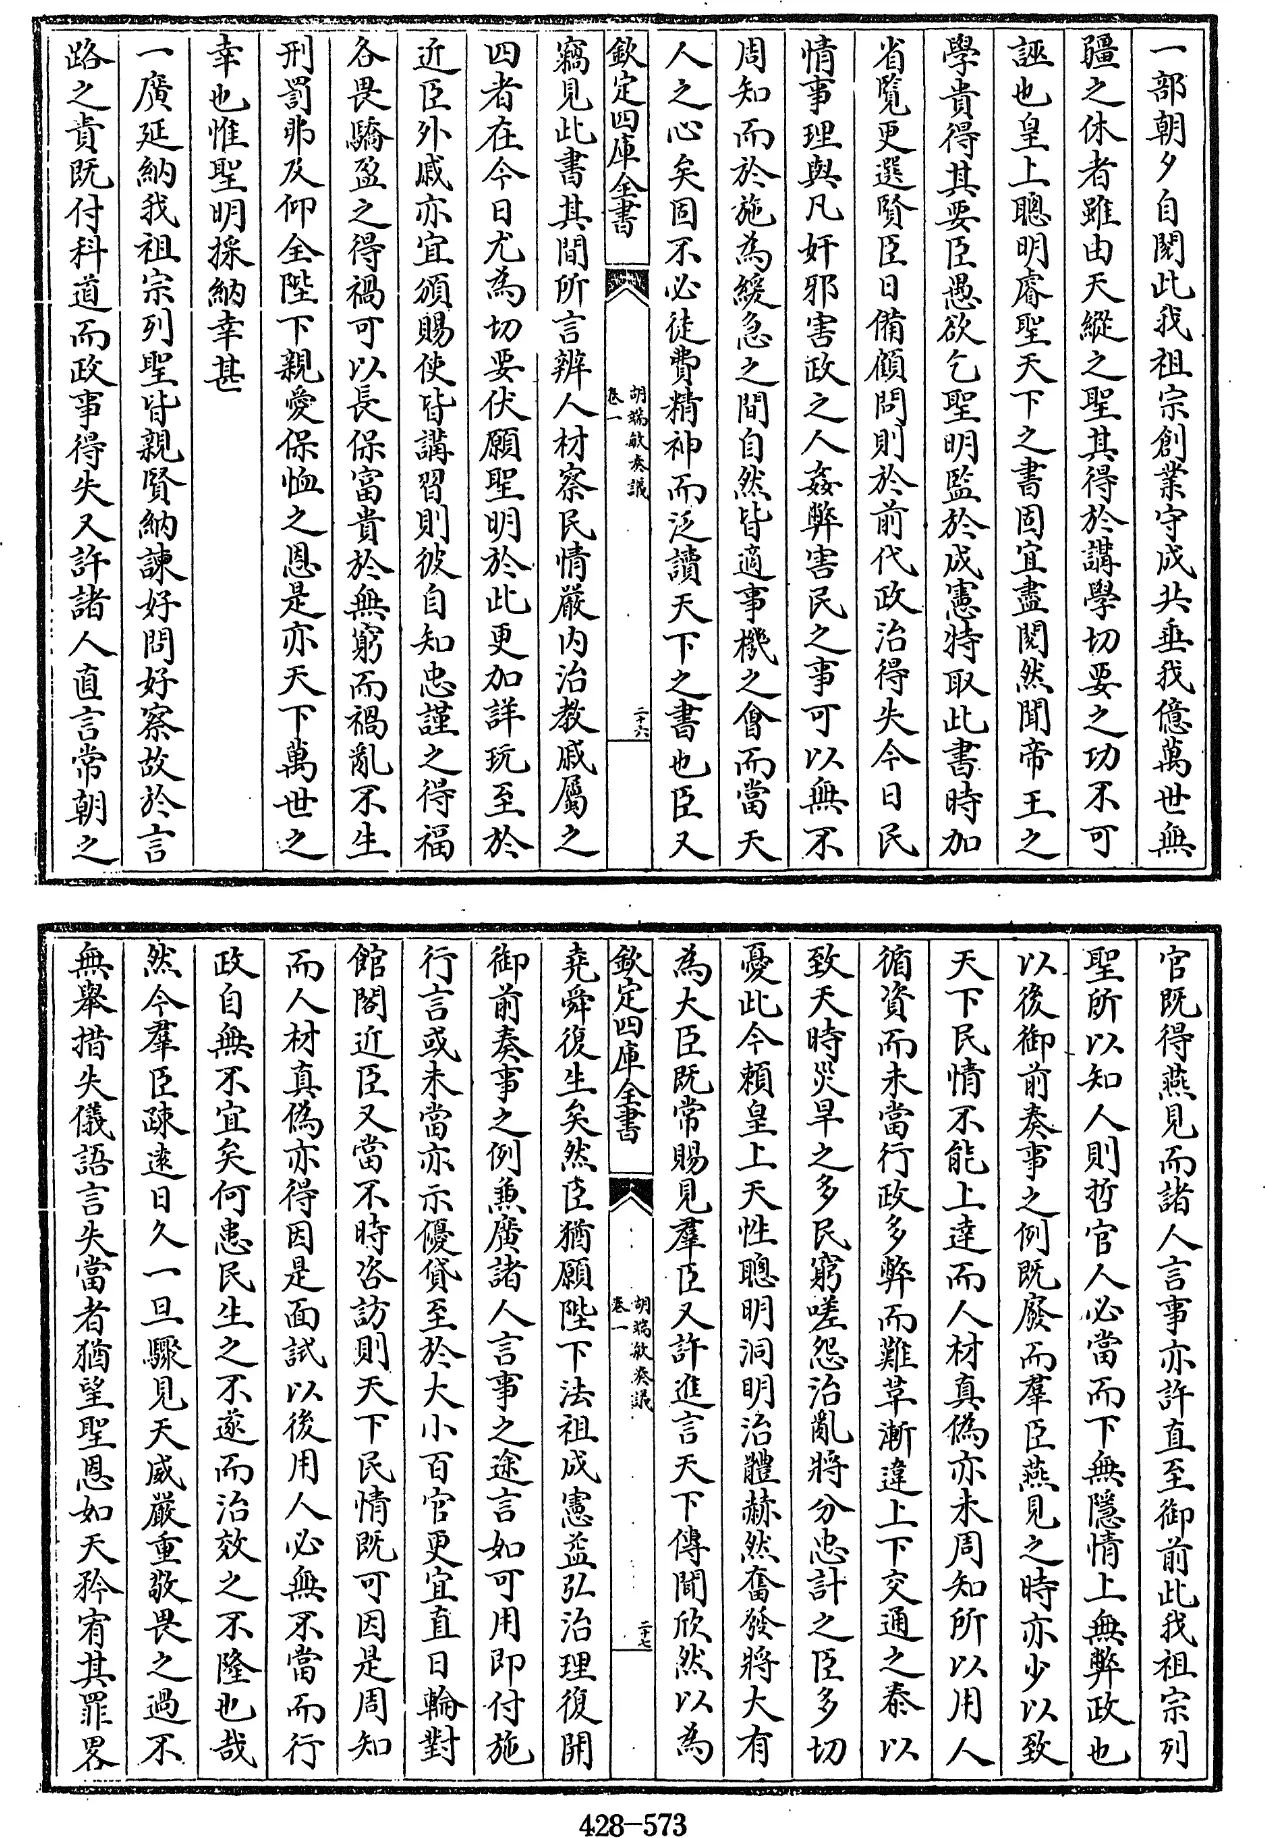 一部朝夕自閱此我祖宗創業守成共垂我億萬世無
疆之休者雖由天縱之聖其得於講學切要之功不可
誣也皇上聰明睿聖天下之書固宜盡閱然聞帝王之
學貴得其要臣愚欲乞聖明監於成憲特取此書時加
省覽更選賢臣日備顧問則於前代政治得失今日民
情事理與凡奸邪害政之人姦弊害民之事可以無不
周知而於施為緩急之間自然皆適事機之會而當天
人之心矣固不必徒費精神而泛讀天下之書也臣又
欽定四庫全書
胡端敏奏議
卷一
二十六
竊見此書其間所言辨人材察民情嚴內治教戚屬之
四者在今日尤為切要伏願聖明於此更加詳玩至於
近臣外戚亦宜頒賜使皆講習則彼自知忠謹之得福
各畏驕盈之得禍可以長保富貴於無窮而禍亂不生
刑罰弗及仰全陛下親愛保恤之恩是亦天下萬世之
幸也惟聖明採納幸甚
一廣延納我祖宗列聖皆親賢納諫好問好察故於言
路之責既付科道而政事得失又許諸人直言常朝之
官既得燕見而諸人言事亦許直至御前此我祖宗列
聖所以知人則哲官人必當而下無隱情上無弊政也
以後御前奏事之例既廢而羣臣燕見之時亦少以致
天下民情不能上達而人材真偽亦未周知所以用人
循資而未當行政多弊而難革漸違上下交通之泰以
致天時災旱之多民窮嗟怨治亂將分忠計之臣多切
憂此今賴皇上天性聰明洞明治體赫然奮發將大有
為大臣既常賜見羣臣又許進言天下傳聞欣然以為
欽定四庫全書
胡端敏奏議
卷一
二十七
堯舜復生矣然臣猶願陛下法祖成憲益弘治理復開
御前奏事之例兼廣諸人言事之途言如可用即付施
行言或未當亦示優貸至於大小百官更宜直日輪對
館閣近臣又當不時咨訪則天下民情既可因是周知
而人材真偽亦得因是面試以後用人必無不當而行
政自無不宜矣何患民生之不遂而治效之不隆也哉
然今羣臣疎遠日久一旦驟見天威嚴重敬畏之過不
無舉措失儀語言失當者猶望聖恩如天矜宥其罪畧
428-573